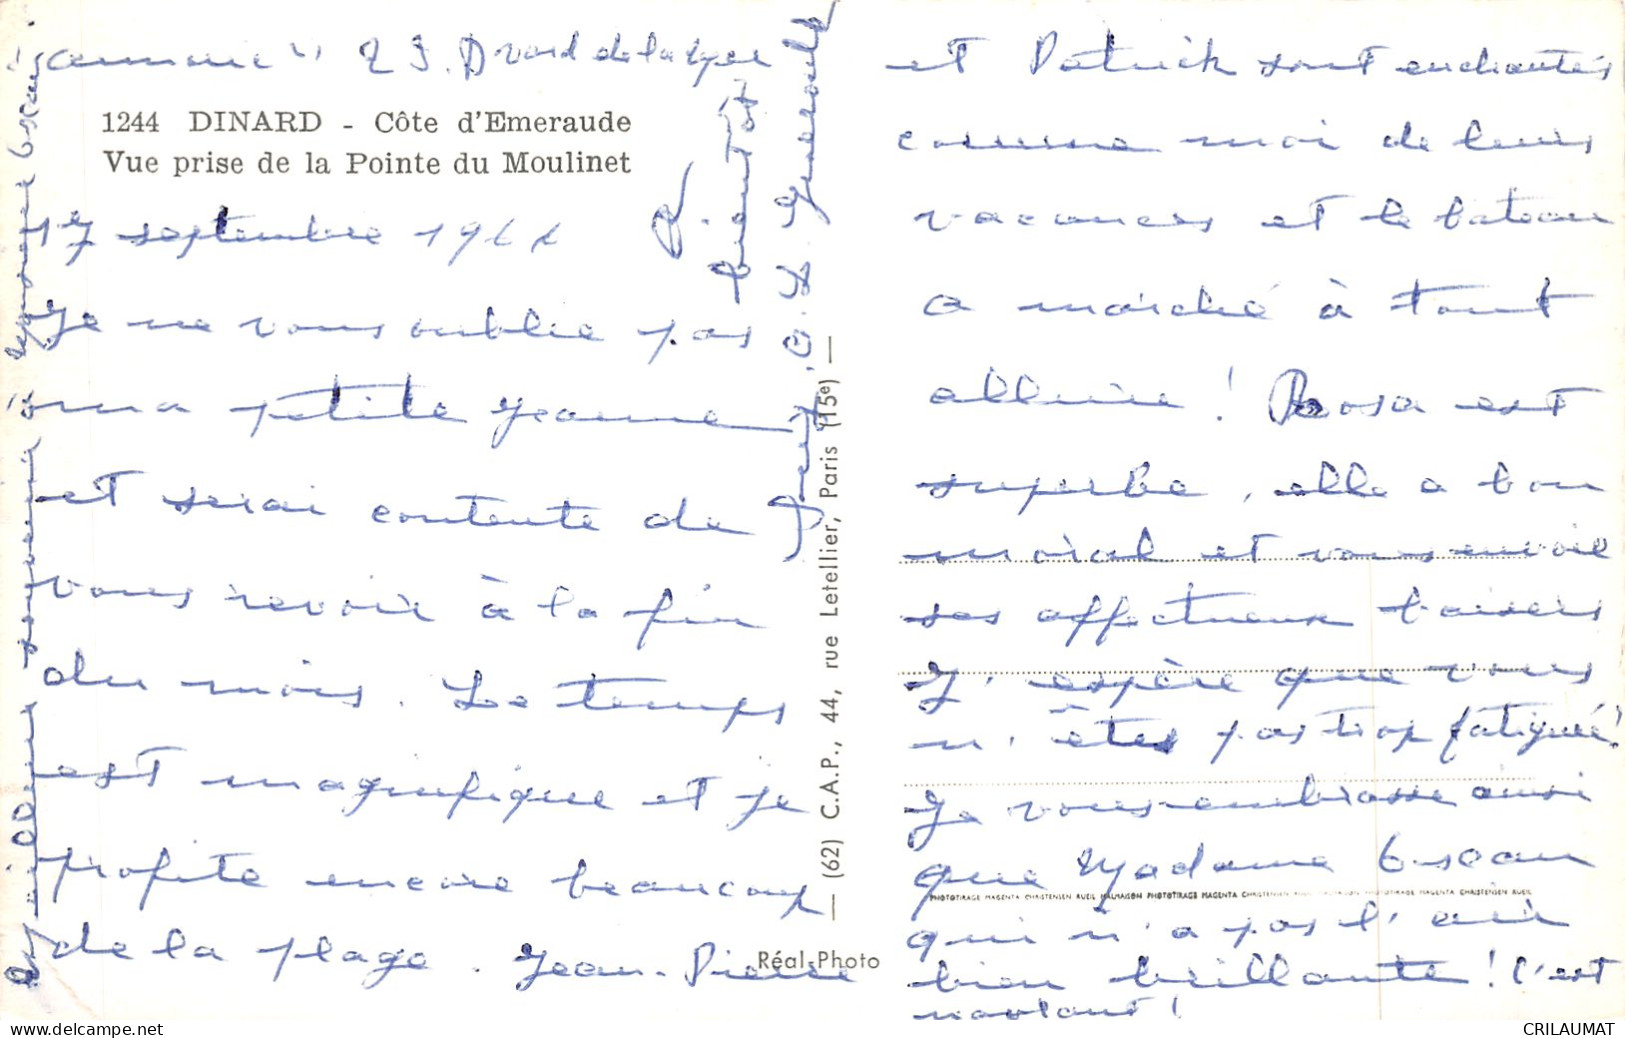 23. Bvard de la
1244 DINARD - Côte d'Emeraude
Vue prise de la Pointe du Moulinet
17 septembre 1966
Je ne vous oublie pas
ma petite Jeanne
et serai contente de
vous revoir à la fin
du mois. Le temps
est magnifique et je
profite encore beaucoup
de la plage. Jean-Pierre
et Patrick sont enchantés
comme moi de leurs
vacances et le bateau
a marché à toute
allure ! Rosa est
superbe, elle a bon
moral et vous envoie
ses affectueux baisers
J'espère que vous
n'êtes pas trop fatiguée !
Je vous embrasse ainsi
que Madame
qui n'a pas l'air
bien brillante ! C'est
navrant !
à bientôt
(62) C.A.P., 44, rue Letellier, Paris (15e)
Réal-Photo
PHOTOTIRAGE MAGENTA CHRISTENSEN RUEIL MALMAISON PHOTOTIRAGE MAGENTA CHRISTENSEN RUEIL MALMAISON PHOTOTIRAGE MAGENTA CHRISTENSEN RUEIL
www.delcampe.net
CRILAUMAT